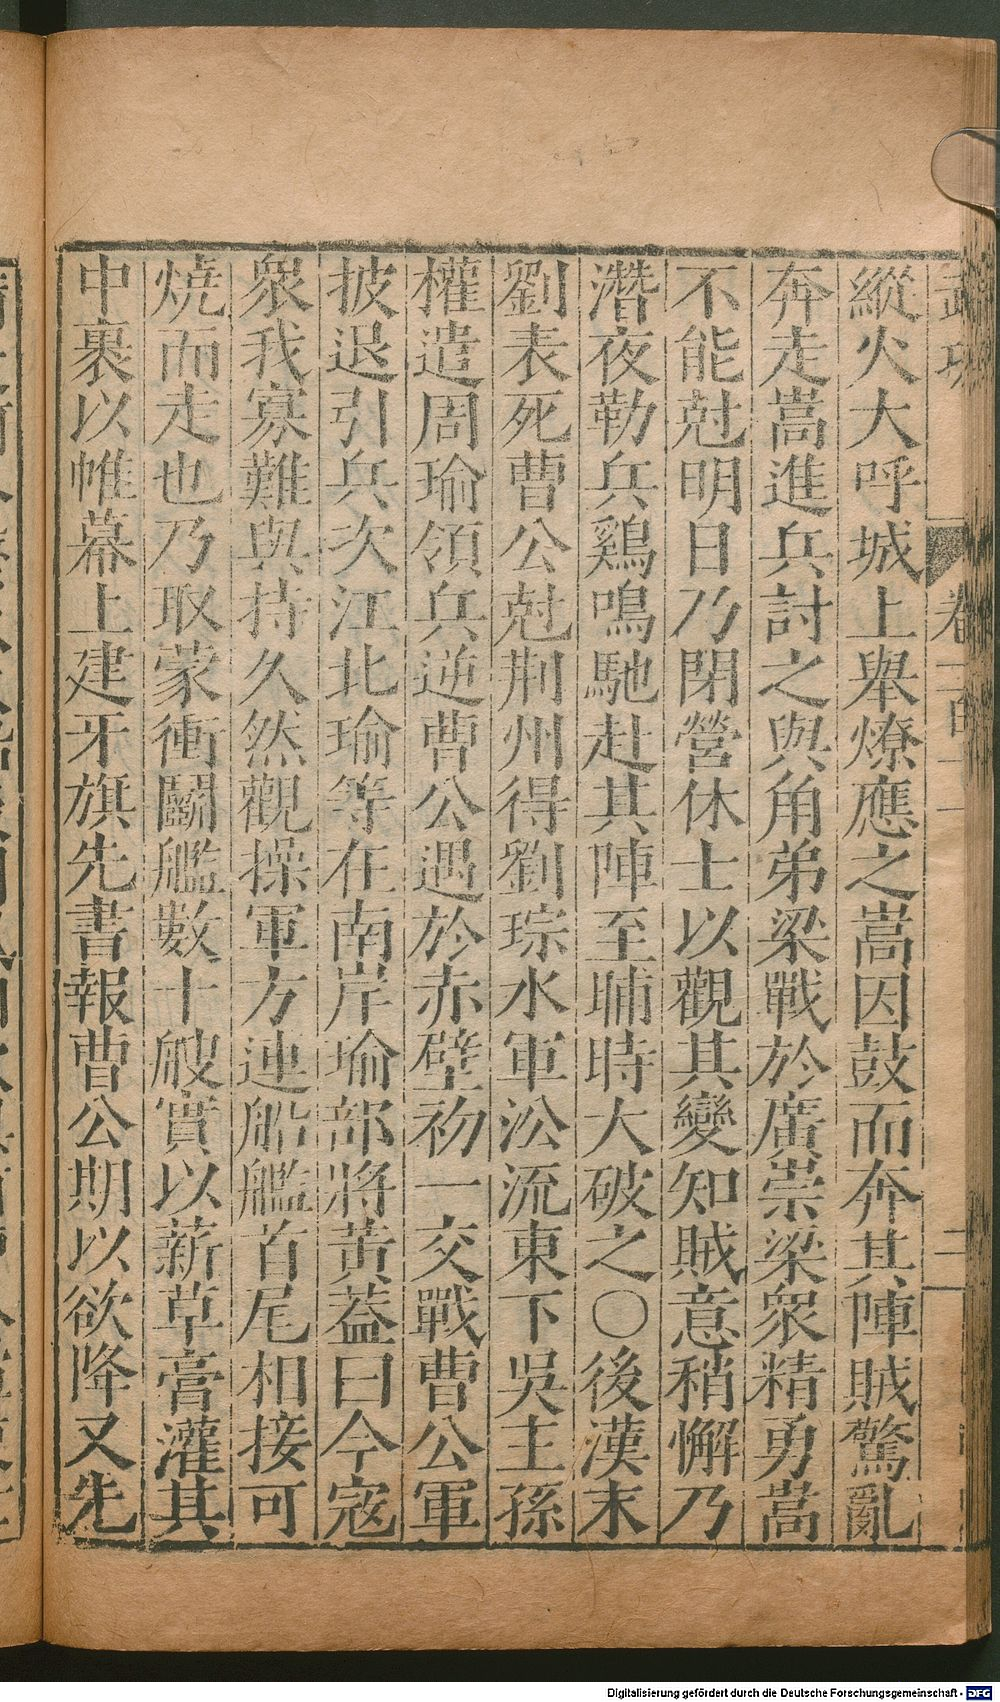 縱火大呼城上舉燎應之嵩因鼓而奔其陣賊驚亂
奔走嵩進兵討之與角弟梁戰於廣崇梁衆精勇嵩
不能尅明日乃閉營休士以觀其變知賊意稍懈乃
潛夜勒兵鷄鳴馳赴其陣至晡時大破之○後漢末
劉表死曹公尅荆州得劉琮水軍㳂流東下吳主孫
權遣周瑜領兵逆曹公遇於赤壁初一交戰曹公軍
披退引兵次江北瑜等在南岸瑜部將黃葢曰今寇
衆我寡難與持久然觀操軍方連船艦首尾相接可
燒而走也乃取蒙衝鬭艦數十艘實以薪草膏灌其
中裹以帷幕上建牙旗先書報曹公期以欲降又先
Digitalisierung gefördert durch die Deutsche Forschungsgemeinschaft - DFG